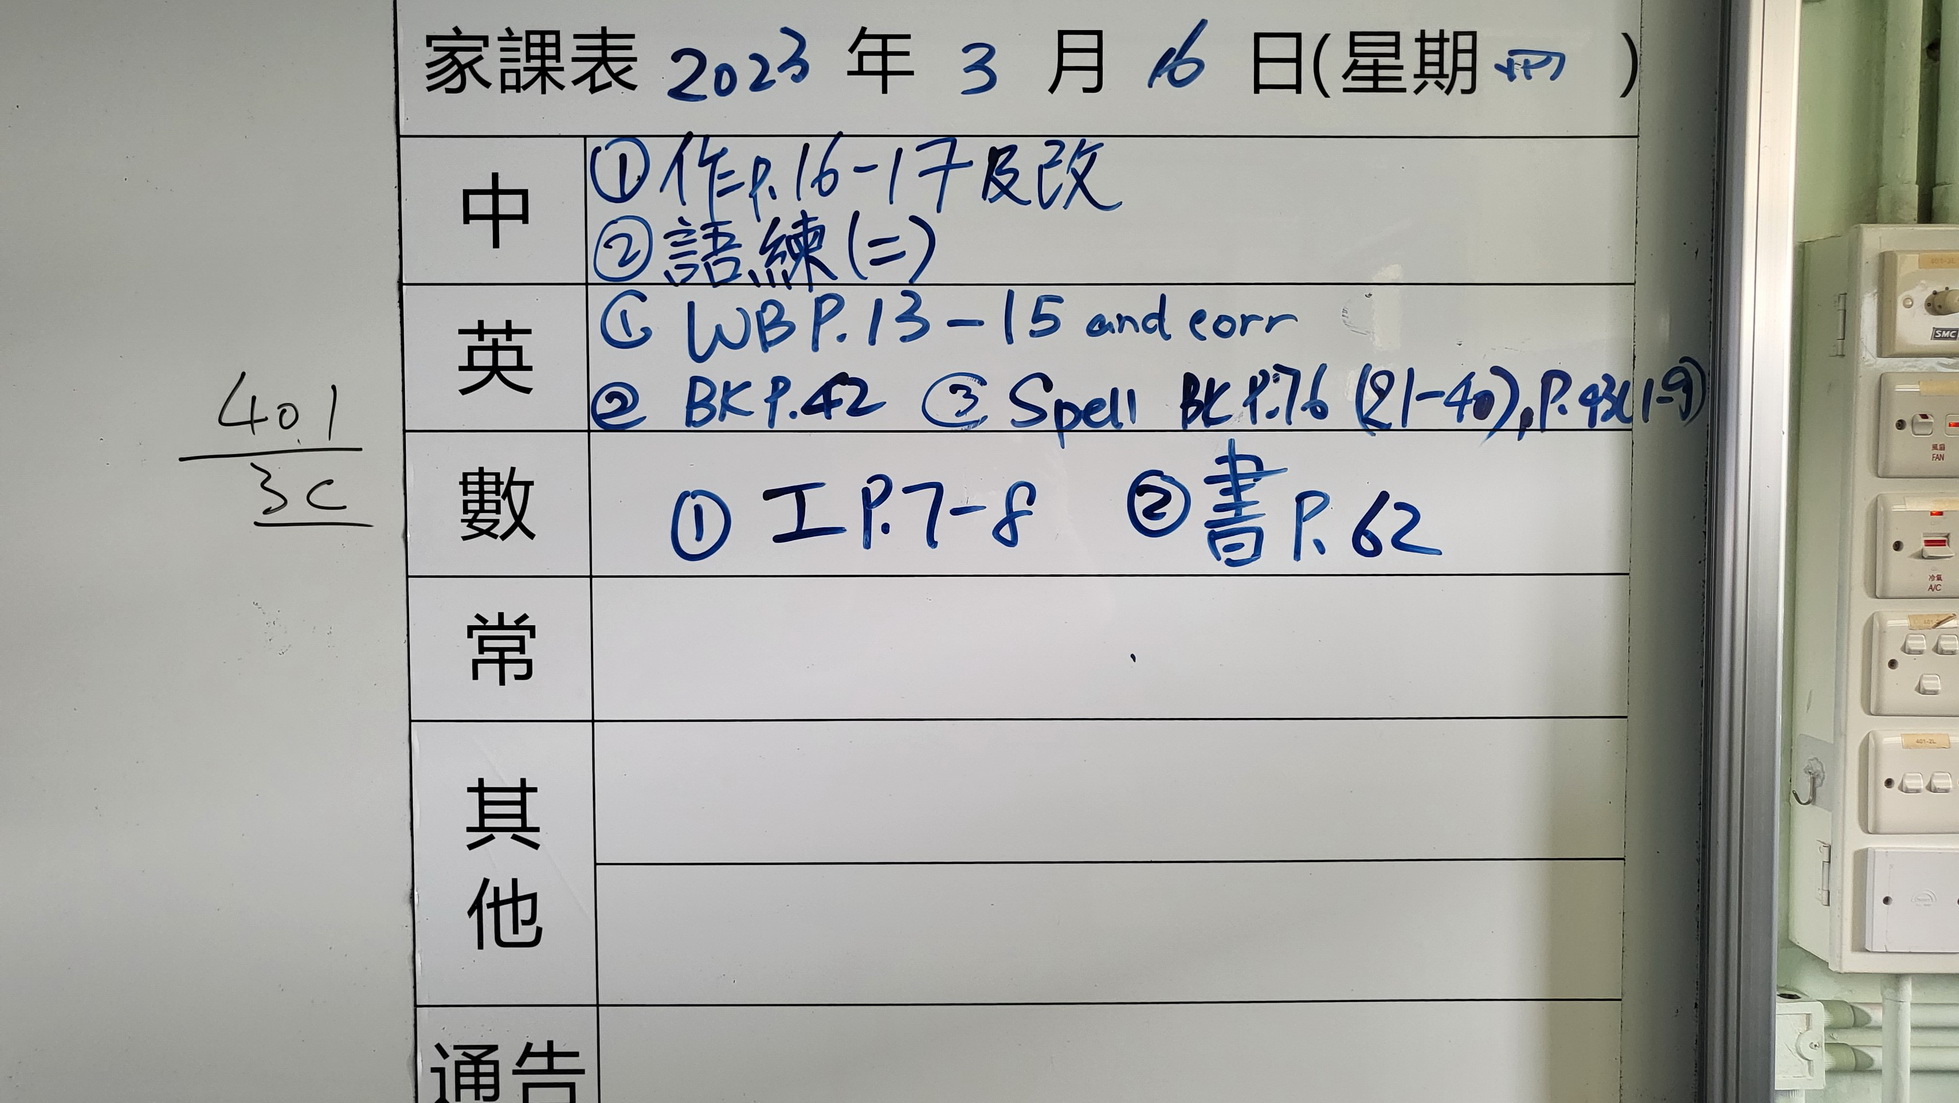 家課表 2023 年 3 月 16 日(星期 四 )
中
①作p.16-17及改
②語練(二)
英
① WB P.13-15 and corr
② BK P.42 ③ Spell BK P.76 (21-40), P.43(1-9)
401
3C
數
① 工 P.7-8 ② 書 P.62
常
其他
通告
SMC
風扇
FAN
冷氣
A/C